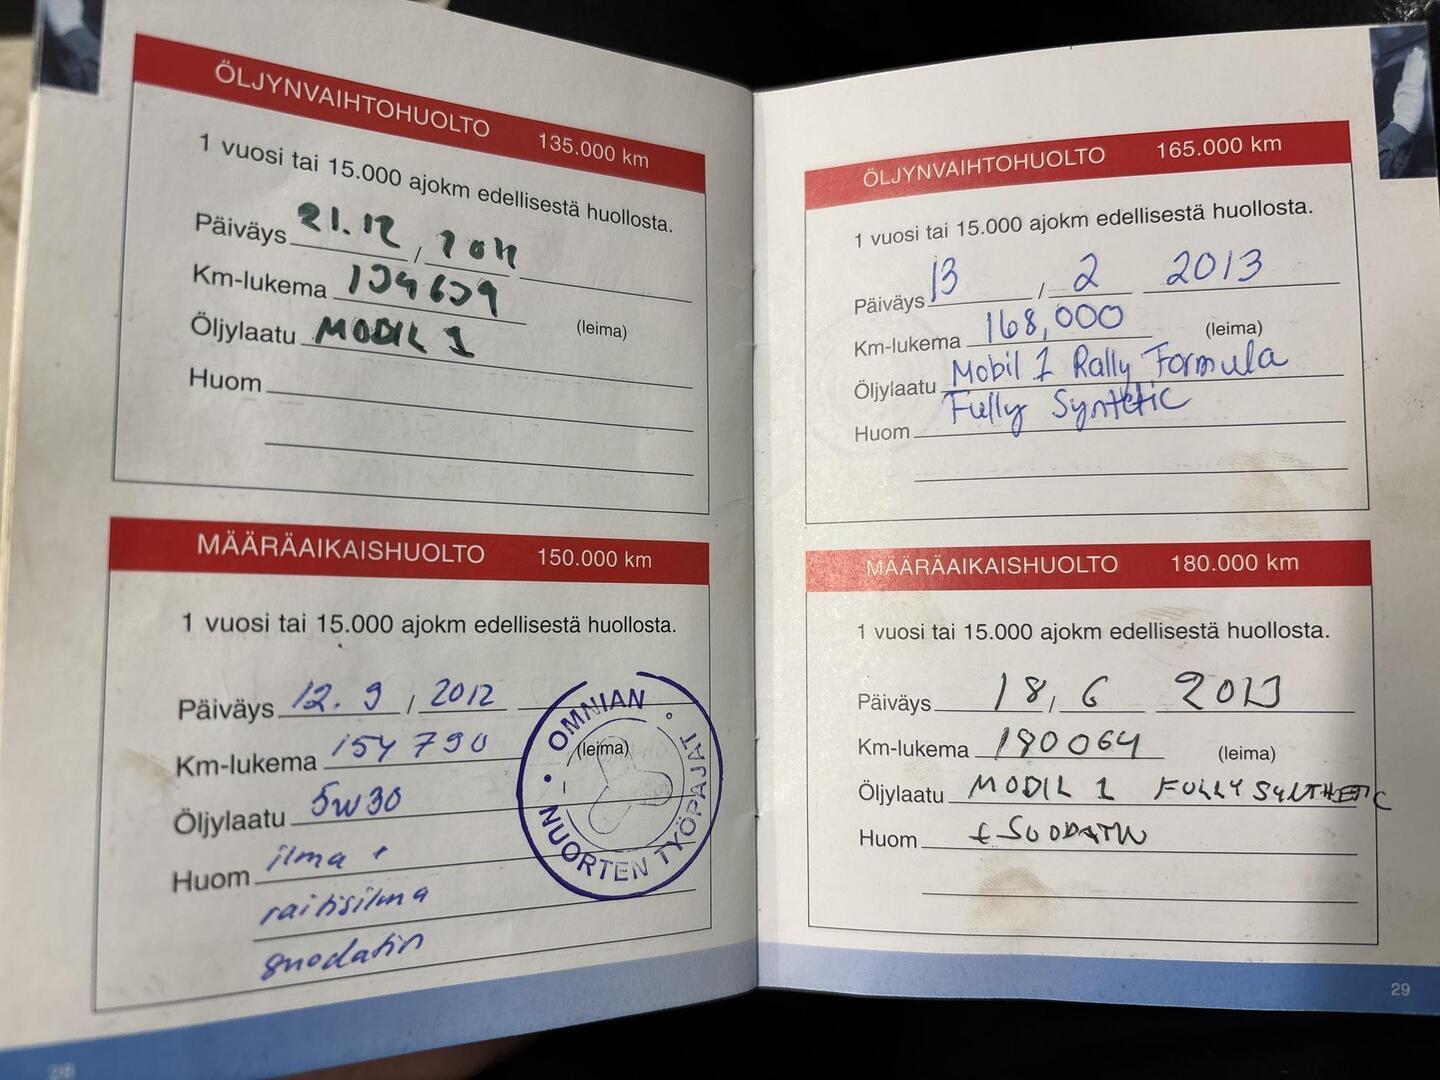 ÖLJYNVAIHTOHUOLTO 135.000 km
1 vuosi tai 15.000 ajokm edellisestä huollosta.
Päiväys 21.12 / 2011
Km-lukema 134639
(leima)
Öljylaatu MOBIL 1
Huom
MÄÄRÄAIKAISHUOLTO 150.000 km
1 vuosi tai 15.000 ajokm edellisestä huollosta.
Päiväys 12. 9 / 2012
Km-lukema 154 790
(leima)
Öljylaatu 5w30
Huom ilma +
raitisilma
suodatin
• OMNIAN •
NUORTEN TYÖPAJAT
28
ÖLJYNVAIHTOHUOLTO 165.000 km
1 vuosi tai 15.000 ajokm edellisestä huollosta.
Päiväys 13 / 2 2013
Km-lukema 168,000 (leima)
Öljylaatu Mobil 1 Rally Formula
Fully Syntetic
Huom
MÄÄRÄAIKAISHUOLTO 180.000 km
1 vuosi tai 15.000 ajokm edellisestä huollosta.
Päiväys 18, 6 2013
Km-lukema 180064 (leima)
Öljylaatu MOBIL 1 FULLY SYNTHETIC
Huom + SUODATIN
29